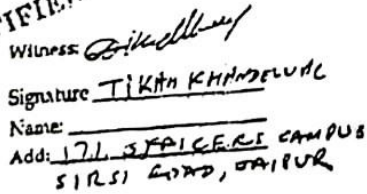 TIFIE
Witness:
Signature TIKAM KHANDELWAL
Name:
Add: 171, OFFICERS CAMPUS
SIRSI ROAD, JAIPUR